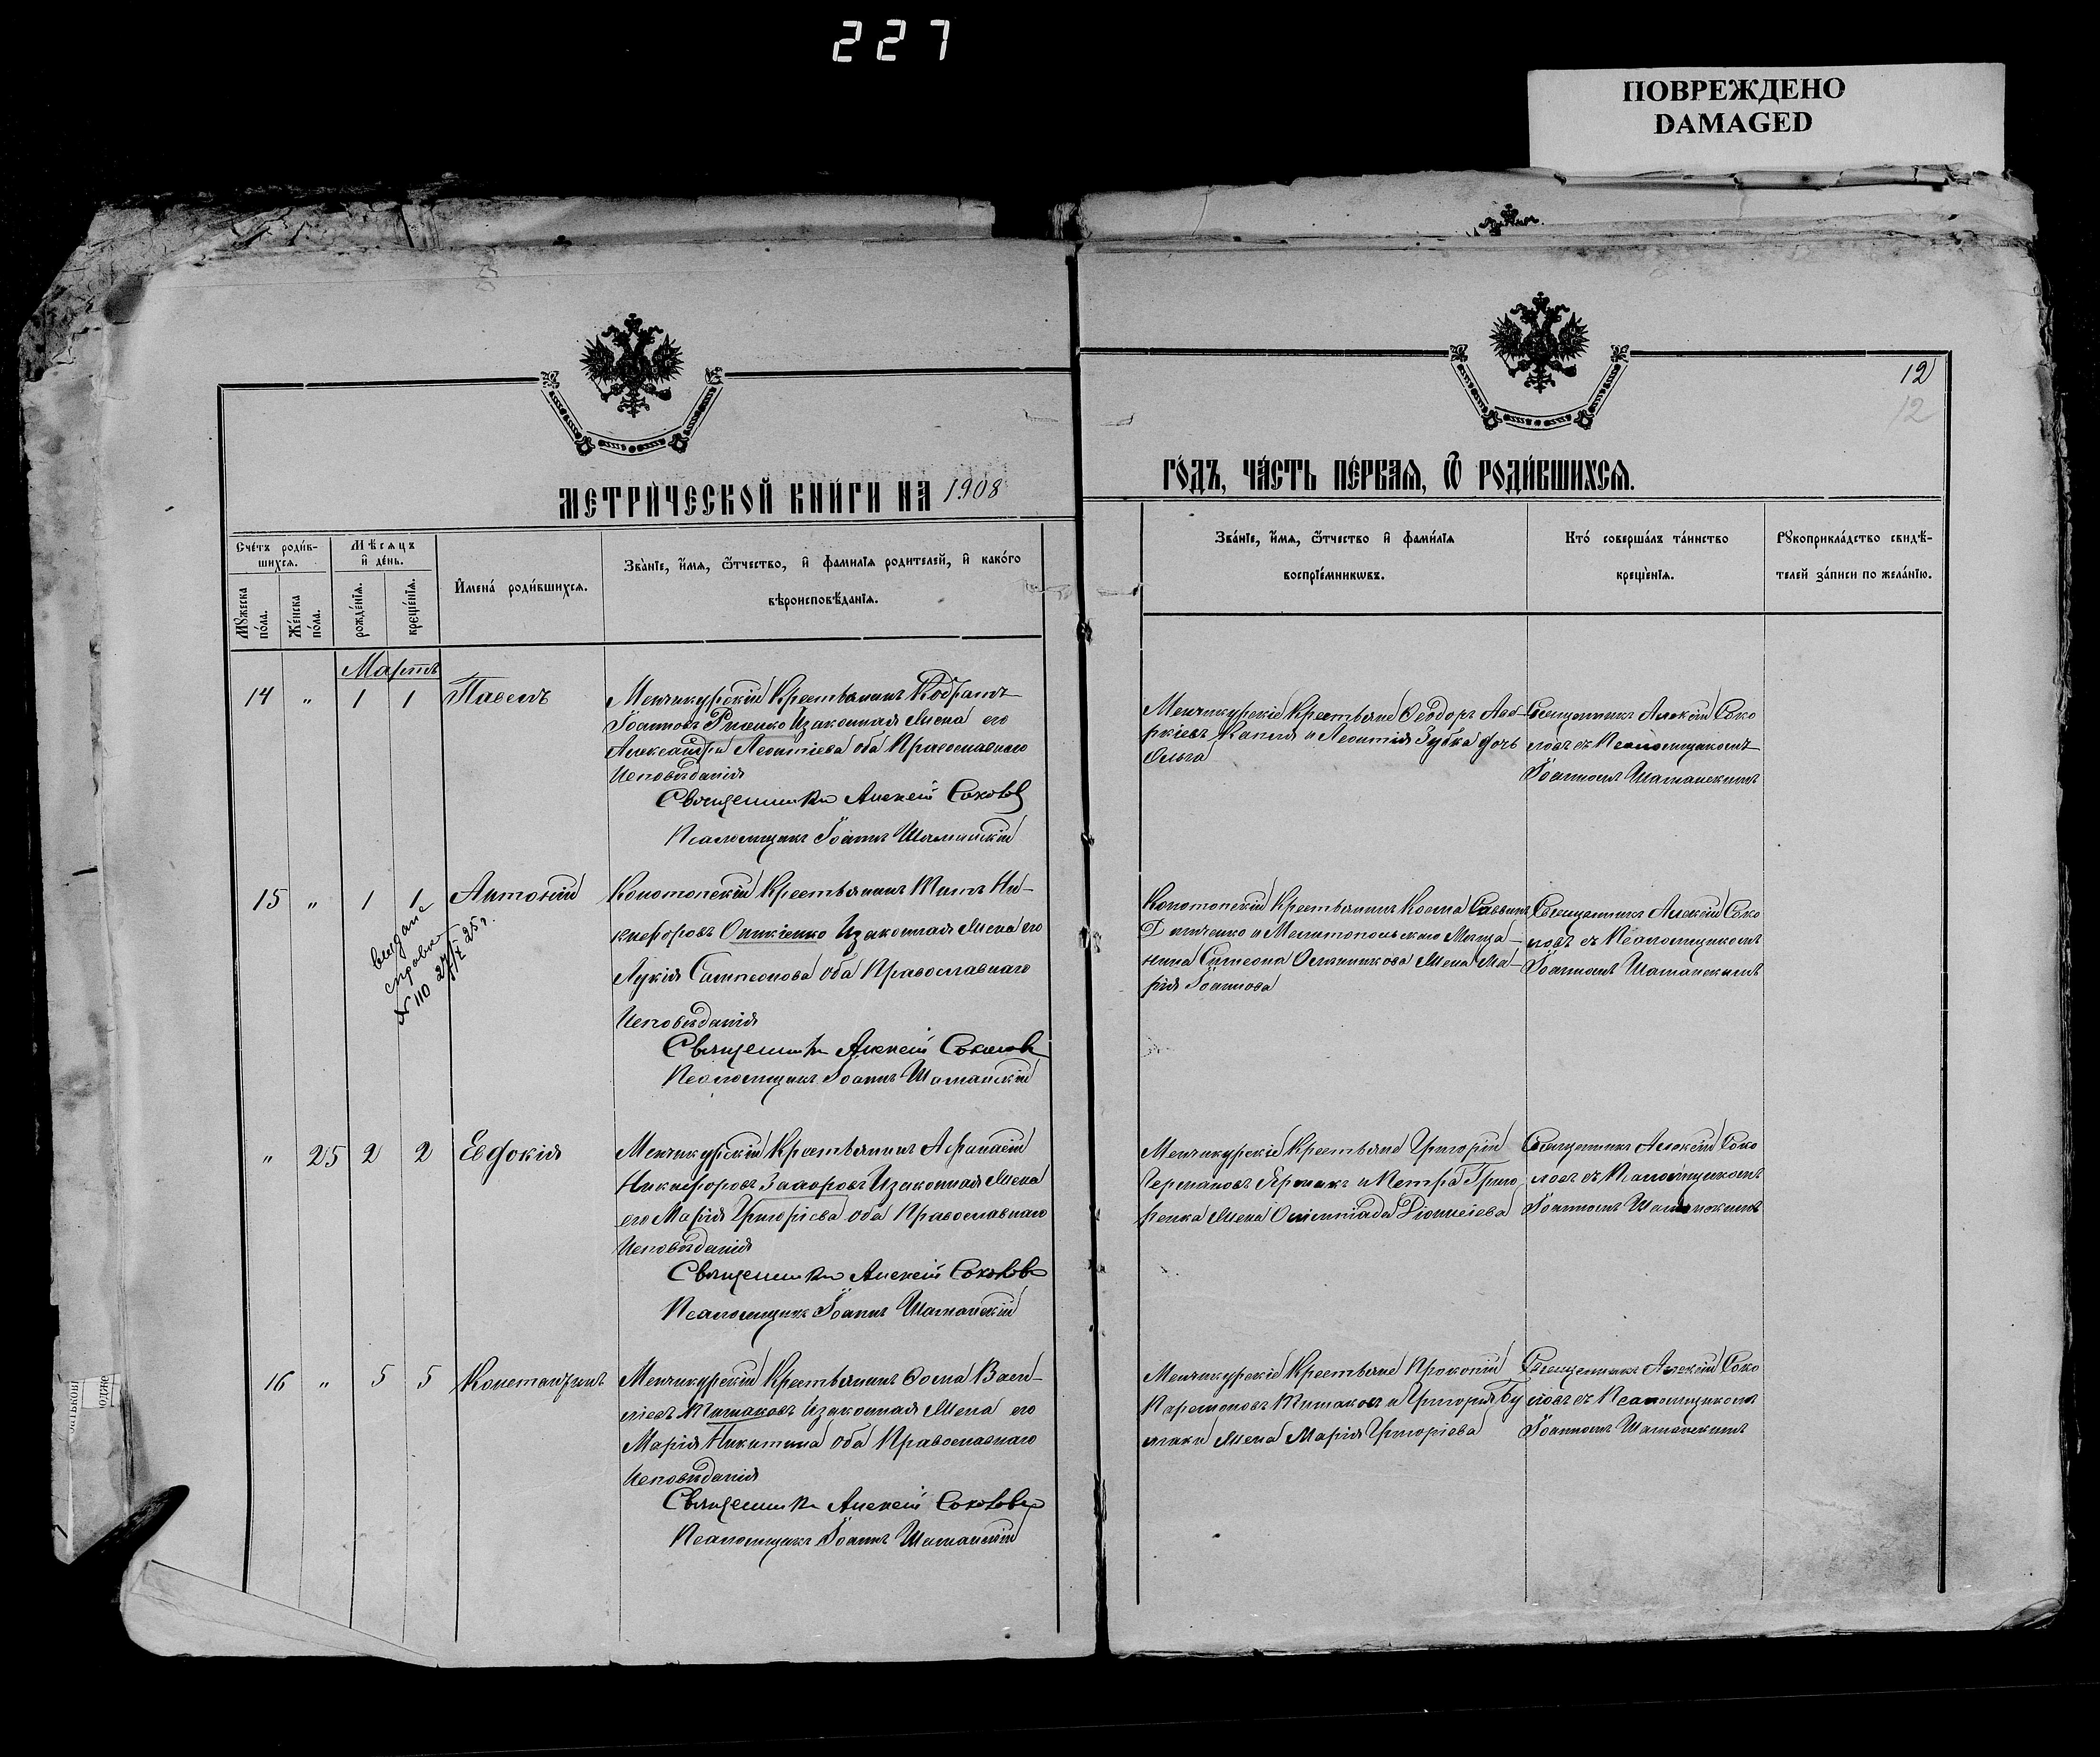 227
ПОВРЕЖДЕНО
DAMAGED
12
12
МЕТРИ́ЧЕСКОЙ КНИ́ГИ НА 1908
ГО́ДЪ, ЧА́СТЬ ПЕ́РВАЯ, Ѿ РОДИ́ВШИХСЯ.
Сче́тъ роди́в-
шихся.
Мꙋжеска по́ла.
Же́нска по́ла.
Мѣ́сяцъ
и҆ де́нь.
рожде́нїя.
креще́нїя.
И҆мена̀ роди́вшихся.
Зва́нїе, и҆́мя, ѻ҆́тчество, и҆ фамилїя родителей, и҆ како́го
вѣроисповѣ́данїя.
Зва́нїе, и҆́мя, ѻ҆́тчество и҆ фами́лїя
воспрїе́мникѡвъ.
Кто́ соверша́лъ та́инство
креще́нїя.
Рꙋкоприкла́дство свидѣ́-
телей за́писи по жела́нїю.
Мартъ
14 " 1 1 Павелъ
Менчикурскій Крестьянинъ Кодратъ
Іоанновъ Риженко Изаконная Жена его
Александра Леонтіева оба Православнаго
Исповѣданія
Священникъ Алексій Соколов
Псаломщикъ Іоаннъ Шаманскій
Менчикурскіе Крестьяне Ѳеодоръ
Капля и Леонтія Зубка дочь
Ольга
Священникъ Алексій Соко
ловъ съ Псаломщикомъ
Іоанномъ Шаманскимъ
15 " 1 1 Антоній
выдана
справка
№ 110 27/IX 25 г.
Конотопскій Крестьянинъ Титъ Ни-
кифоровъ Изаконная Жена его
Лукія Симеонова оба Православнаго
Исповѣданія
Священникъ Алексій Соколовъ
Псаломщикъ Іоаннъ Шаманскій
Конотопскій Крестьянинъ Косма Саввинъ
и Мелитопольскаго Мѣща-
нина Симеона Жена Ма-
рія Іоаннова
Священникъ Алексій Соко
ловъ съ Псаломщикомъ
Іоанномъ Шаманскимъ
" 25 2 2 Евдокія
Менчикурскій Крестьянинъ Афанасій
Никифоровъ Изаконная Жена
его Марія Григоріева оба Православнаго
Исповѣданія
Священникъ Алексій Соколовъ
Псаломщикъ Іоаннъ Шаманскій
Менчикурскіе Крестьяне Григорій
Германовъ Ермакъ и Петра Григо
ренка Жена Олимпіада Діонисіева
Священникъ Алексій Соко
ловъ съ Псаломщикомъ
Іоанномъ Шаманскимъ
16 " 5 5 Константинъ
Менчикурскій Крестьянинъ Ѳома Васи-
ліевъ Тишаковъ Изаконная Жена его
Марія Никитина оба Православнаго
Исповѣданія
Священникъ Алексій Соколовъ
Псаломщикъ Іоаннъ Шаманскій
Менчикурскіе Крестьяне Прокопій
Парамоновъ Тишаковъ и Григорія
Жена Марія Григоріева
Священникъ Алексій Соко
ловъ съ Псаломщикомъ
Іоанномъ Шаманскимъ